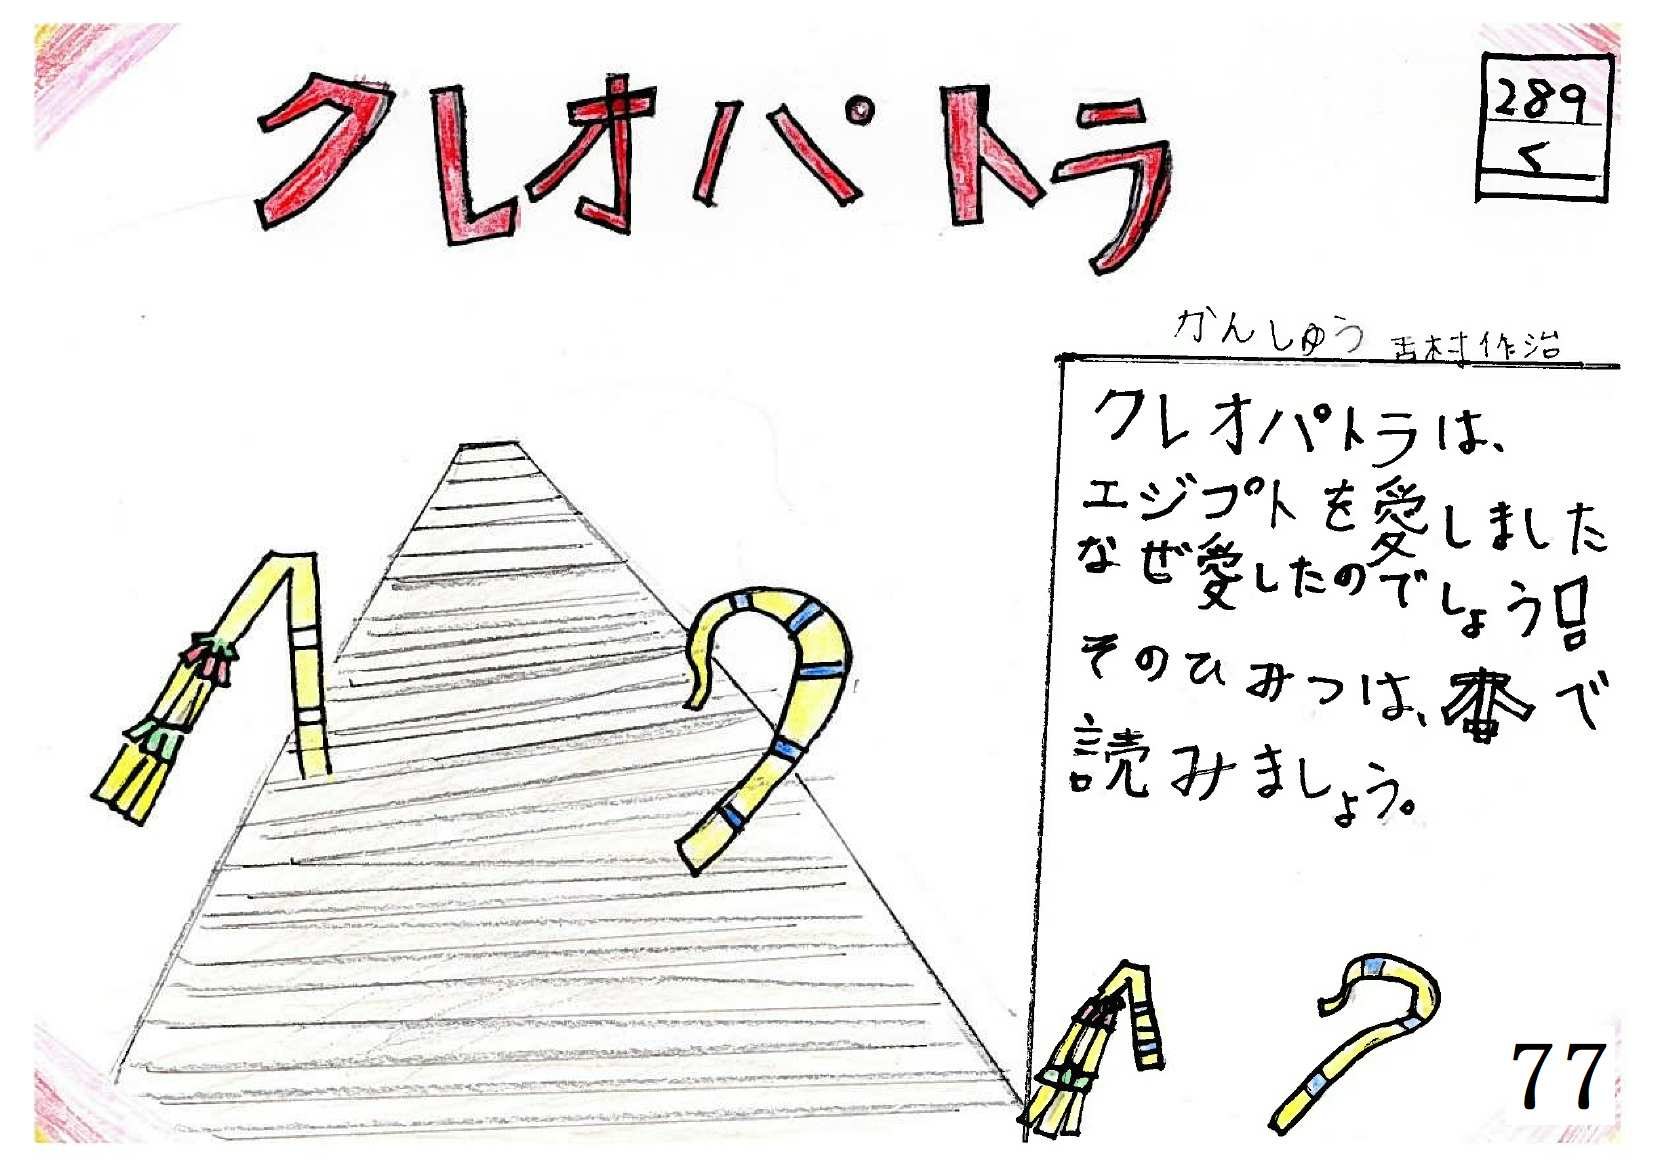 クレオパトラ
289
く
かんしゅう 吉村作治
クレオパトラは、
エジプトを愛しました
なぜ愛したのでしょう!
そのひみつは、本で
読みましょう。
77